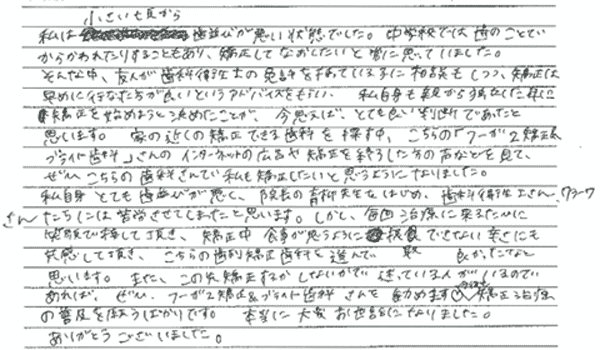 小さい頃から
私は 歯並びが悪い状態でした。中学校では歯のことでい
からかわれたりすることもあり、矯正してなおしたいと常に思っていました。
そんな中、友人が歯科衛生士の免許を持っている子に相談もしつつ、矯正は
早めに行なった方が良いというアドバイスをもらい、私自身も親から独立した年に
矯正を始めようと決めたことが、今思えば、とても良い判断であったと
思います。家の近くの矯正できる歯科を探す中、こちらの「フーガ2矯正&
ブライト歯科」さんのインターネットの広告や矯正を終了した方の声などを見て、
ぜひこちらの歯科さんでい私も矯正したいと思うようになりました。
私自身とても歯並びが悪く、院長の青柳先生をはじめ、歯科衛生士さん、
さんたちには苦労させてしまったと思います。しかし、毎回治療に来るたびに
笑顔で接して頂き、矯正中食事が思うように できない辛さにも
共感して頂き、こちらの歯科矯正歯科を選んで 良かったなと
思います。また、この先矯正するかしないかで迷っている人がいるので
あれば、ぜひ、フーガ2矯正&ブライト歯科さんを勧めます 矯正治療
の普及を願うばかりです。本当に大変お世話になりました。
ありがとうございました。